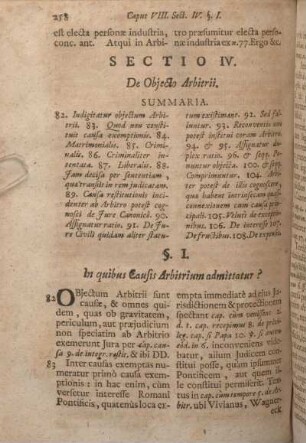 258 Caput VIII. Sect. IV. §. I.
est electa personæ industria,
conc. ant. Atqui in Arbi-
tro præsumitur electa perso-
næ industria ex n. 77. Ergo &c.
SECTIO IV.
De Objecto Arbitrii.
SUMMARIA.
82. Indigitatur objectum Arbi-
trii. 83. Quod non consti-
tuit causa exemptionis. 84.
Matrimonialis. 85. Crimi-
nalis. 86. Criminaliter in-
tentata. 87. Liberalis. 88.
Jam decisa per sententiam
quæ transiit in rem judicatam.
89. Causa restitutionis inci-
denter ab Arbitro potest cog-
nosci de Jure Canonico. 90.
Assignatur ratio. 91. De Ju-
re Civili quidam aliter statu-
tum existimant. 92. Sed fal-
luntur. 93. Reconventio non
potest institui coram Arbitro.
94. & 95. Assignatur du-
plex ratio. 96. & seqq.
& seqq.
104. Arbi-
ter potest de illis cognoscere,
quæ habent
cum causa prin-
cipali. 105. Veluti de exce-
ptionibus. 106. De interesse
De fructibus. 108. De expensis
§. I.
In quibus Causis Arbitrium admittatur?
82 Objectum Arbitrii sunt
causæ, & omnes qui-
dem, quas ob gravitatem,
periculum, aut præjudicium
non speciatim ab Arbitrio
exemerunt Jura per cap. cau-
sa 9. de integr. restit. & ibi DD.
83 Inter causas exemptas nu-
meratur primò causa exempti-
onis: in hac enim, cùm
versetur interesse Romani
Pontificis, quatenus loca ex-
empta immediatè ad ejus Ju-
risdictionem & protectionem
spectant cap. cum vobis 7. &
d. t. cap. recepimus 8. de privi-
leg. cap. si Papa 10. §.
eod. in 6. inconveniens vide-
batur, alium Judicem consti-
tui posse, quàm ipsummet
Pontificem, aut quem ipse
constitui permiserit. Text.
tus in cap. cum tempore 5. de Ar-
bitr. ubi Vivianus, Wagner-
eck